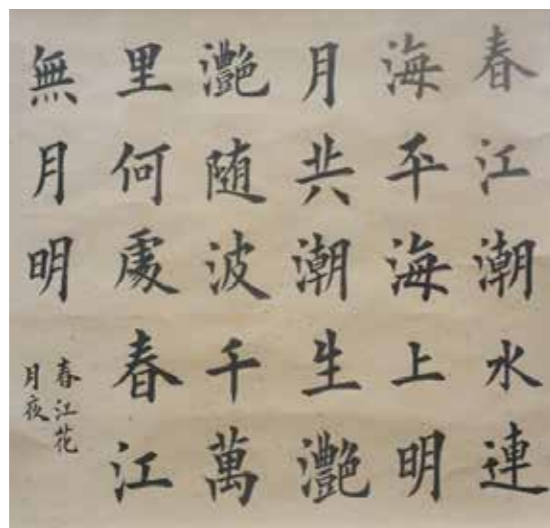 春江潮水連
海平海上明
月共潮生灧
灧随波千萬
里何處春江
無月明
春江花
月夜